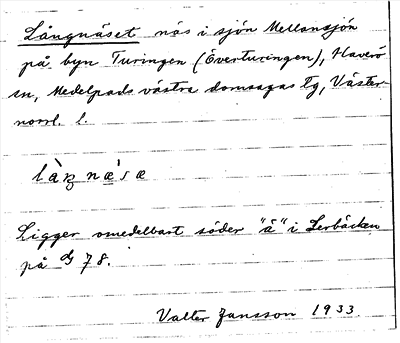 Långnäset näs i sjön Mellansjön
på byn Turingen (Överturingen), Haverö
sn, Medelpads västra domsagas tg, Väster-
norrl. l.
Ligger omedelbart söder "å" i Lerbäcken
på G 78.
Valter Jansson 1933.